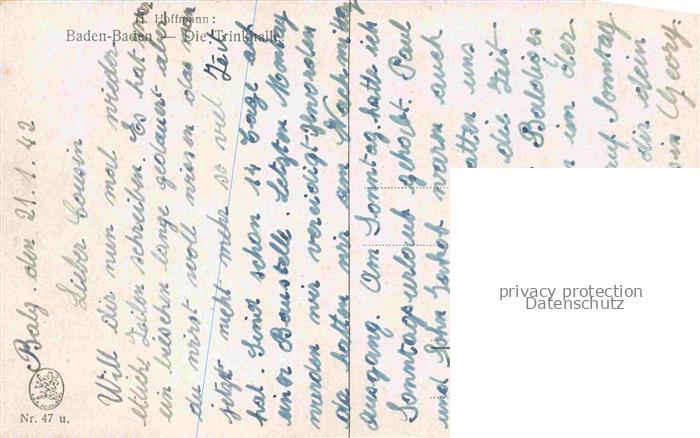 H. Hoffmann:
Baden-Baden — Die Trinkhalle
Balg. den 21.1.42
Lieber Cousin
Will dir nun mal wieder
etlich Zeilen schreiben. Es hat ja
ein bischen lange gedauert aber
du wirst woll wissen das man
jetzt nicht mehr so viel Zeit
hat. Sind schon 14 Tage auf
einer Baustelle. Letzten Montag
wurden wir vereidigt
da hatten wir am Nachmittag
Ausgang. Am Sonntag hatte ich
Sonntagsurlaub gehabt. Paul
und John Jakob waren auch
hatten uns
die Zeit.
Baldiges
im der
auf Sonntag
dir dein
Georg.
Nr. 47 u.
privacy protection
Datenschutz